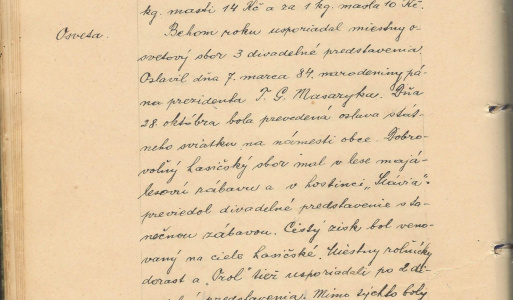 kg. masti 14 Kč a za 1 kg. masla 10 Kč.
Osveta.
Behom roku usporiadal miestny o-
svetový sbor 3 divadelné predstavenia.
Oslavil dňa 7. marca 84. narodeniny pá-
na prezidenta T. G. Masaryka. Dňa
28. októbra bola prevedená oslava štát-
neho sviatku na námestí obce. Dobro-
voľný hasičský sbor mal v lese majá-
lesovú zábavu a v hostinci „Slávia“
previedol divadelné predstavenie s ta-
nečnou zábavou. Čistý zisk bol veno-
vaný na ciele hasičské. Miestny roľnícky
dorast a „Orol“ tiež usporiadali po 2 di-
predstavenia. Mimo týchto boly